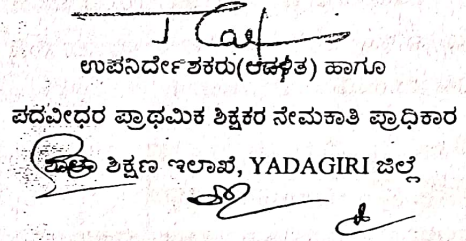 ಉಪನಿರ್ದೇಶಕರು(ಆಡಳಿತ) ಹಾಗೂ
ಪದವೀಧರ ಪ್ರಾಥಮಿಕ ಶಿಕ್ಷಕರ ನೇಮಕಾತಿ ಪ್ರಾಧಿಕಾರ
ಶಾಲಾ ಶಿಕ್ಷಣ ಇಲಾಖೆ, YADAGIRI ಜಿಲ್ಲೆ